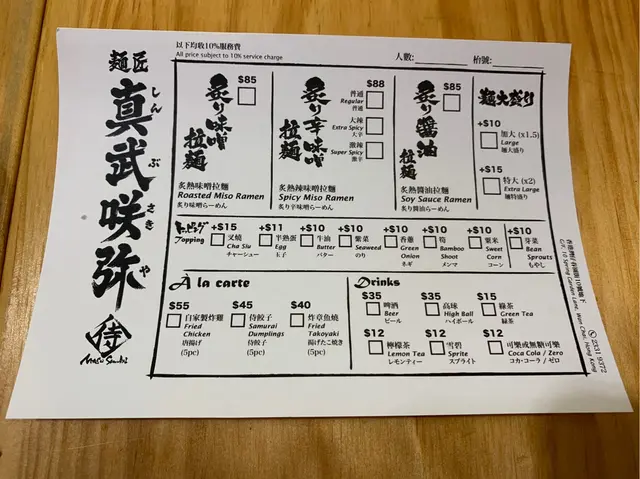 以下均收10%服務費
All price subject to 10% service charge
人數:
枱號:
麵匠
真武咲弥
しん
ぶ
さき
や
侍
$85
炙り味噌
拉麵
炙熱味噌拉麵
Roasted Miso Ramen
炙り味噌らーめん
$88
炙り辛味噌
拉麵
普通
Regular
普通
大辣
Extra Spicy
大辛
激辣
Super Spicy
激辛
炙熱辣味噌拉麵
Spicy Miso Ramen
炙り辛味噌らーめん
$85
炙り醬油
拉麵
炙熱醬油拉麵
Soy Sauce Ramen
炙り醬油らーめん
麵大盛り
+$10
加大 (x1.5)
Large
麵大盛り
+$15
特大 (x2)
Extra Large
麵特盛り
トッピング
Topping
+$15
叉燒
Cha Siu
チャーシュー
+$11
半熟蛋
Egg
玉子
+$10
牛油
Butter
バター
+$10
紫菜
Seaweed
のり
+$10
香蔥
Green
Onion
ネギ
+$10
筍
Bamboo
Shoot
メンマ
+$10
粟米
Sweet
Corn
コーン
+$10
芽菜
Bean
Sprouts
もやし
A la carte
$55
自家製炸雞
Fried
Chicken
唐揚げ
(5pc)
$45
侍餃子
Samurai
Dumplings
侍餃子
(5pc)
$40
炸章魚燒
Fried
Takoyaki
揚げたこ焼き
(5pc)
Drinks
$35
啤酒
Beer
ビール
$35
高球
High Ball
ハイボール
$15
綠茶
Green Tea
緑茶
$12
檸檬茶
Lemon Tea
レモンティー
$12
雪碧
Sprite
スプライト
$12
可樂或無糖可樂
Coca Cola / Zero
コカ・コーラ / ゼロ
G/F, 10 Spring Garden Lane, Wan Chai, Hong Kong